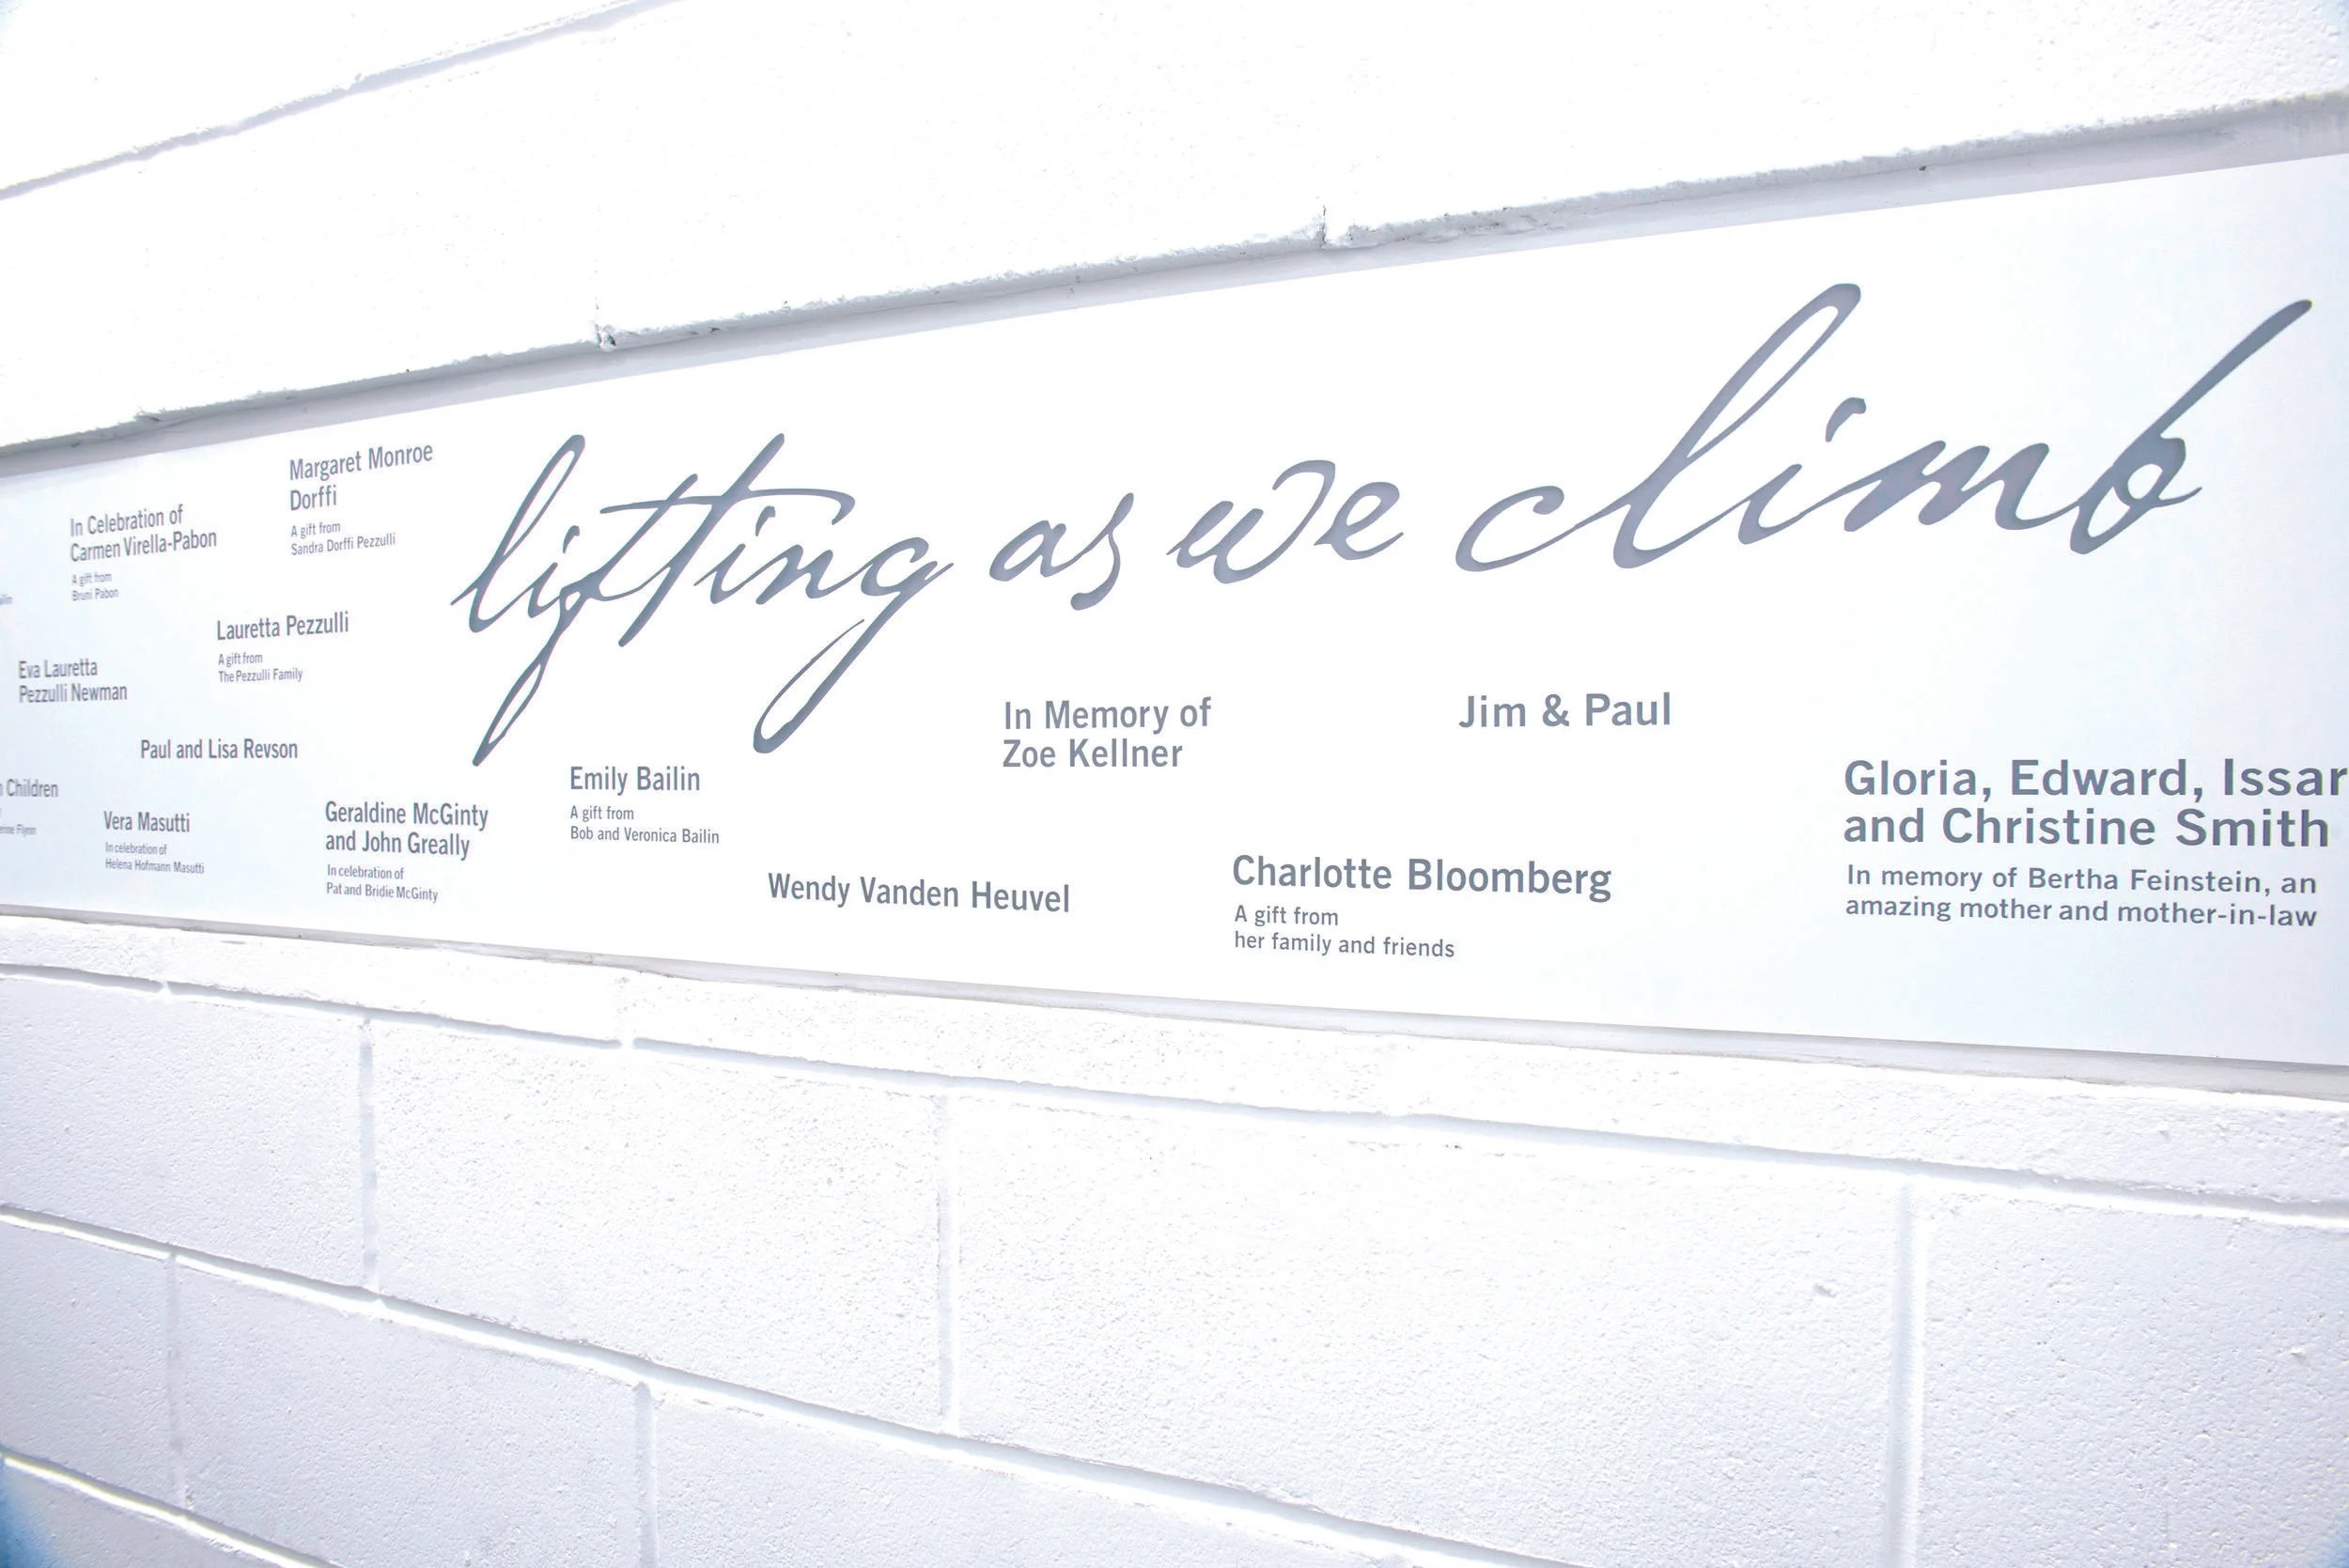 In Celebration of
Carmen Virella-Pabon
A gift from
Bruni Pabon
Margaret Monroe
Dorffi
A gift from
Sandra Dorffi Pezzulli
lifting as we climb
Lauretta Pezzulli
A gift from
The Pezzulli Family
Eva Lauretta
Pezzulli Newman
Paul and Lisa Revson
Children
Vera Masutti
In celebration of
Helena Hofmann Masutti
Geraldine McGinty
and John Greally
In celebration of
Pat and Bridie McGinty
Emily Bailin
A gift from
Bob and Veronica Bailin
In Memory of
Zoe Kellner
Jim & Paul
Wendy Vanden Heuvel
Charlotte Bloomberg
A gift from
her family and friends
Gloria, Edward, Issar
and Christine Smith
In memory of Bertha Feinstein, an
amazing mother and mother-in-law